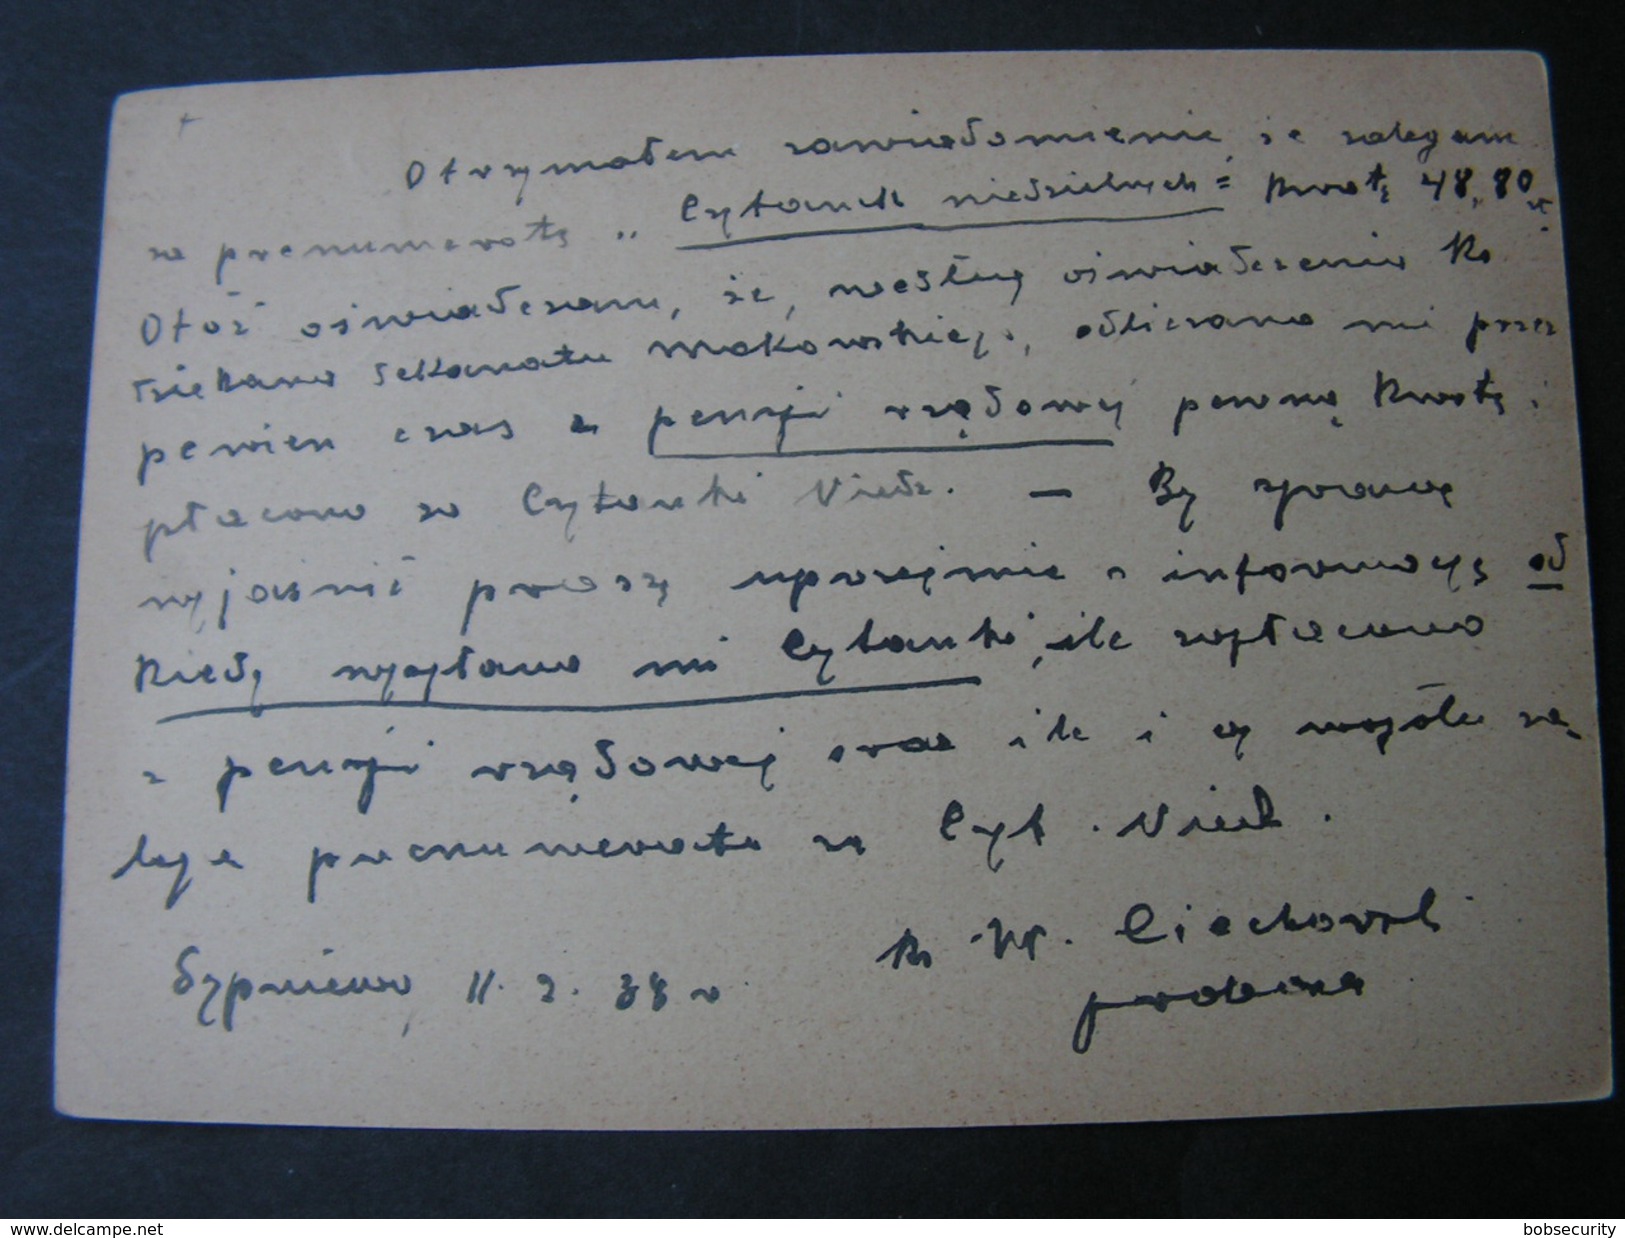 Otrzymałem zawiadomienie, że zalegam
za prenumeratę „Czytanek niedzielnych" kwotę 48,80 zł.
Otóż oświadczam, że, według oświadczenia ks.
dziekana dekanatu makowskiego, odliczano mi przez
pewien czas z pensji rządowej pewną kwotę i
płacono za Czytanki Niedz. — By sprawę
wyjaśnić proszę uprzejmie o informację od
kiedy wysyłano mi Czytanki, ile zapłacono
z pensji rządowej oraz ile i czy wogóle za-
lega prenumerata za Czyt. Niedz.
ks. W. Ciechorski
Sypniewo, 11.2.38 r.
proboszcz
www.delcampe.net
bobsecurity